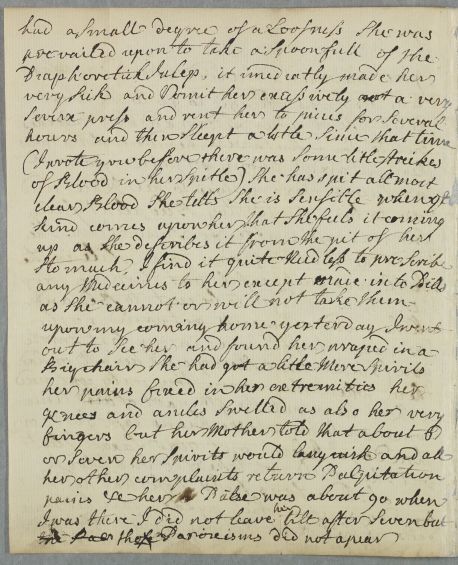 had a Small degree of a Loosness She was
prevailed upon to take a Spoonfull of the
Diaphoretick Julep, it imediatly made her
very Sick and Vomit her excessively a very
Severe press and rent her to pieces for Several
hours and then Sleept a litle Since that time
(I wrote you before there was Some litle Strikes
of Blood in her Spitle) She has Spit all most
clear Blood She tells She is Sensible when yt
kind comes upon her that She feels it coming
up as She describes it from the pit of her
Stomach, I find it quite Needless to prescribe
any Medicines to her except in to Bills
as She cannot or will not take them
upon my coming home yesterday I went
out to See her and found her wraped in a
Bigchair She had got a litle More Spirits
her pains fixed in her extremities her
knees and ancles Swelled as also her very
fingers but her Mother told that about 6
or Seven her Spirits would languish and all
her other complaints return Palpitation
pains &c her Pulse was about 90 when
I was there I did not leave her till after Seven but
those Paroxisms did not apear